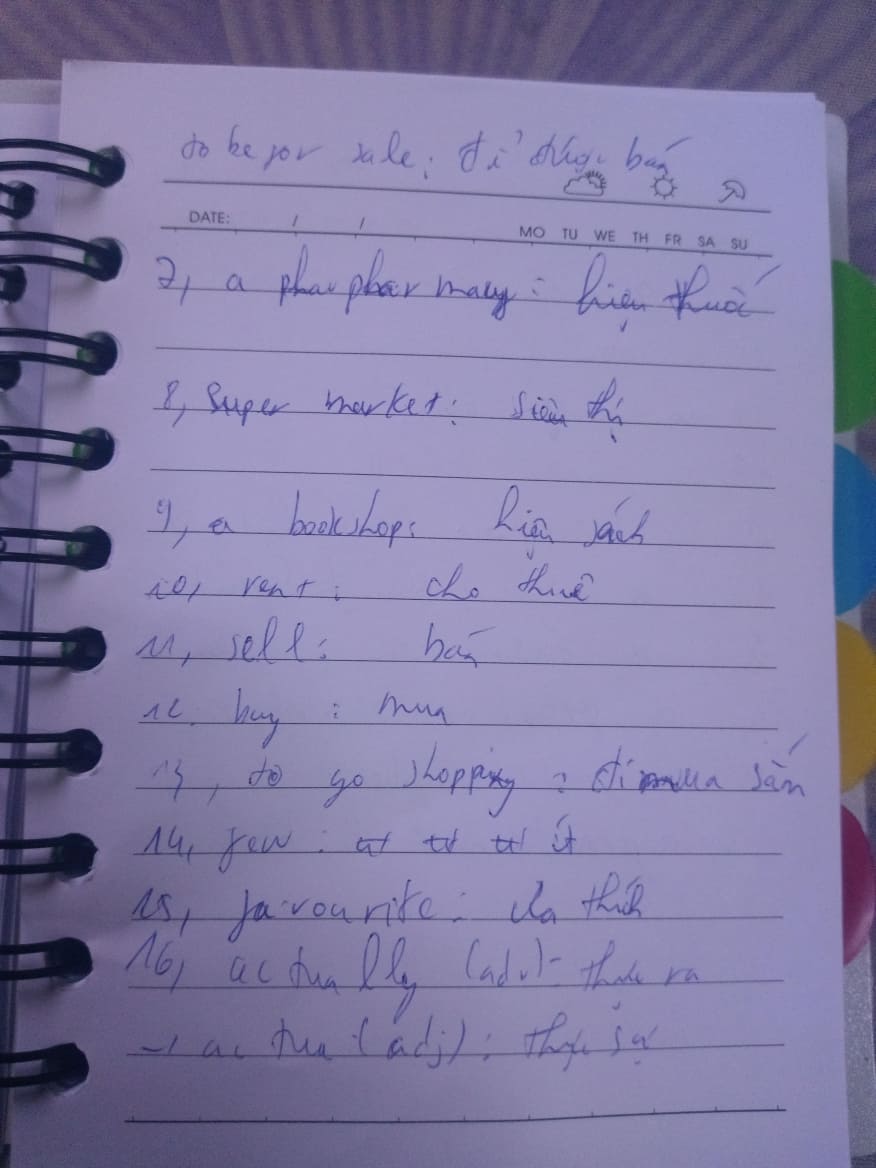 to be for sale: để được bán
DATE: / /
MO TU WE TH FR SA SU
7, a phar pharmacy: hiệu thuốc
8, Super market: siêu thị
9, a bookshop: hiệu sách
10, rent: cho thuê
11, sell: bán
12. buy: mua
13, to go shopping: đi mua sắn
14, few: ít
15, favourite: ưa thích
16, actually (adv)= thực ra
-, actua (adj): thực sự